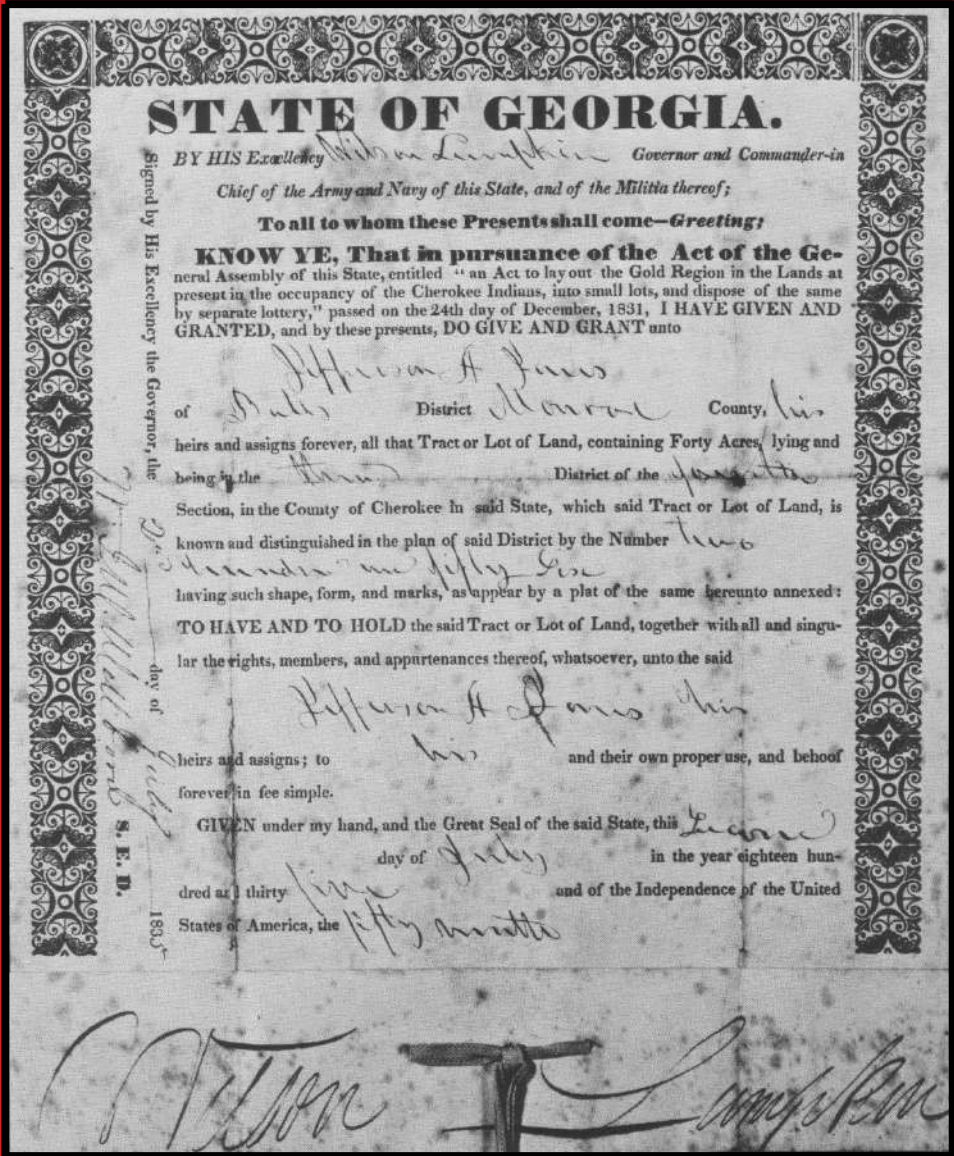 STATE OF GEORGIA.
BY HIS Excellency Wilson Lumpkin Governor and Commander-in
Chief of the Army and Navy of this State, and of the Militia thereof;
To all to whom these Presents shall come—Greeting;
KNOW YE, That in pursuance of the Act of the Ge-
neral Assembly of this State, entitled "an Act to lay out the Gold Region in the Lands at
present in the occupancy of the Cherokee Indians, into small lots, and dispose of the same
by separate lottery," passed on the 24th day of December, 1831, I HAVE GIVEN AND
GRANTED, and by these presents, DO GIVE AND GRANT unto
Jefferson A
of District Monroe County, his
heirs and assigns forever, all that Tract or Lot of Land, containing Forty Acres, lying and
being in the District of the
Section, in the County of Cherokee in said State, which said Tract or Lot of Land, is
known and distinguished in the plan of said District by the Number two
fifty
having such shape, form, and marks, as appear by a plat of the same hereunto annexed:
TO HAVE AND TO HOLD the said Tract or Lot of Land, together with all and singu-
lar the rights, members, and appurtenances thereof, whatsoever, unto the said
Jefferson A his
heirs and assigns; to his and their own proper use, and behoof
forever in fee simple.
GIVEN under my hand, and the Great Seal of the said State, this
day of July in the year eighteen hun-
dred and thirty five and of the Independence of the United
States of America, the fifty ninth
Wilson Lumpkin
Signed by His Excellency the Governor, the day of July 1835
S. E. D.